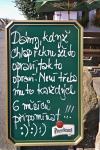 Dámy, když
chlap řekne, že to
opraví, tak to
opraví. Není třeba
mu to každých
6 měsíců
připomínat!!!
:) :) :)